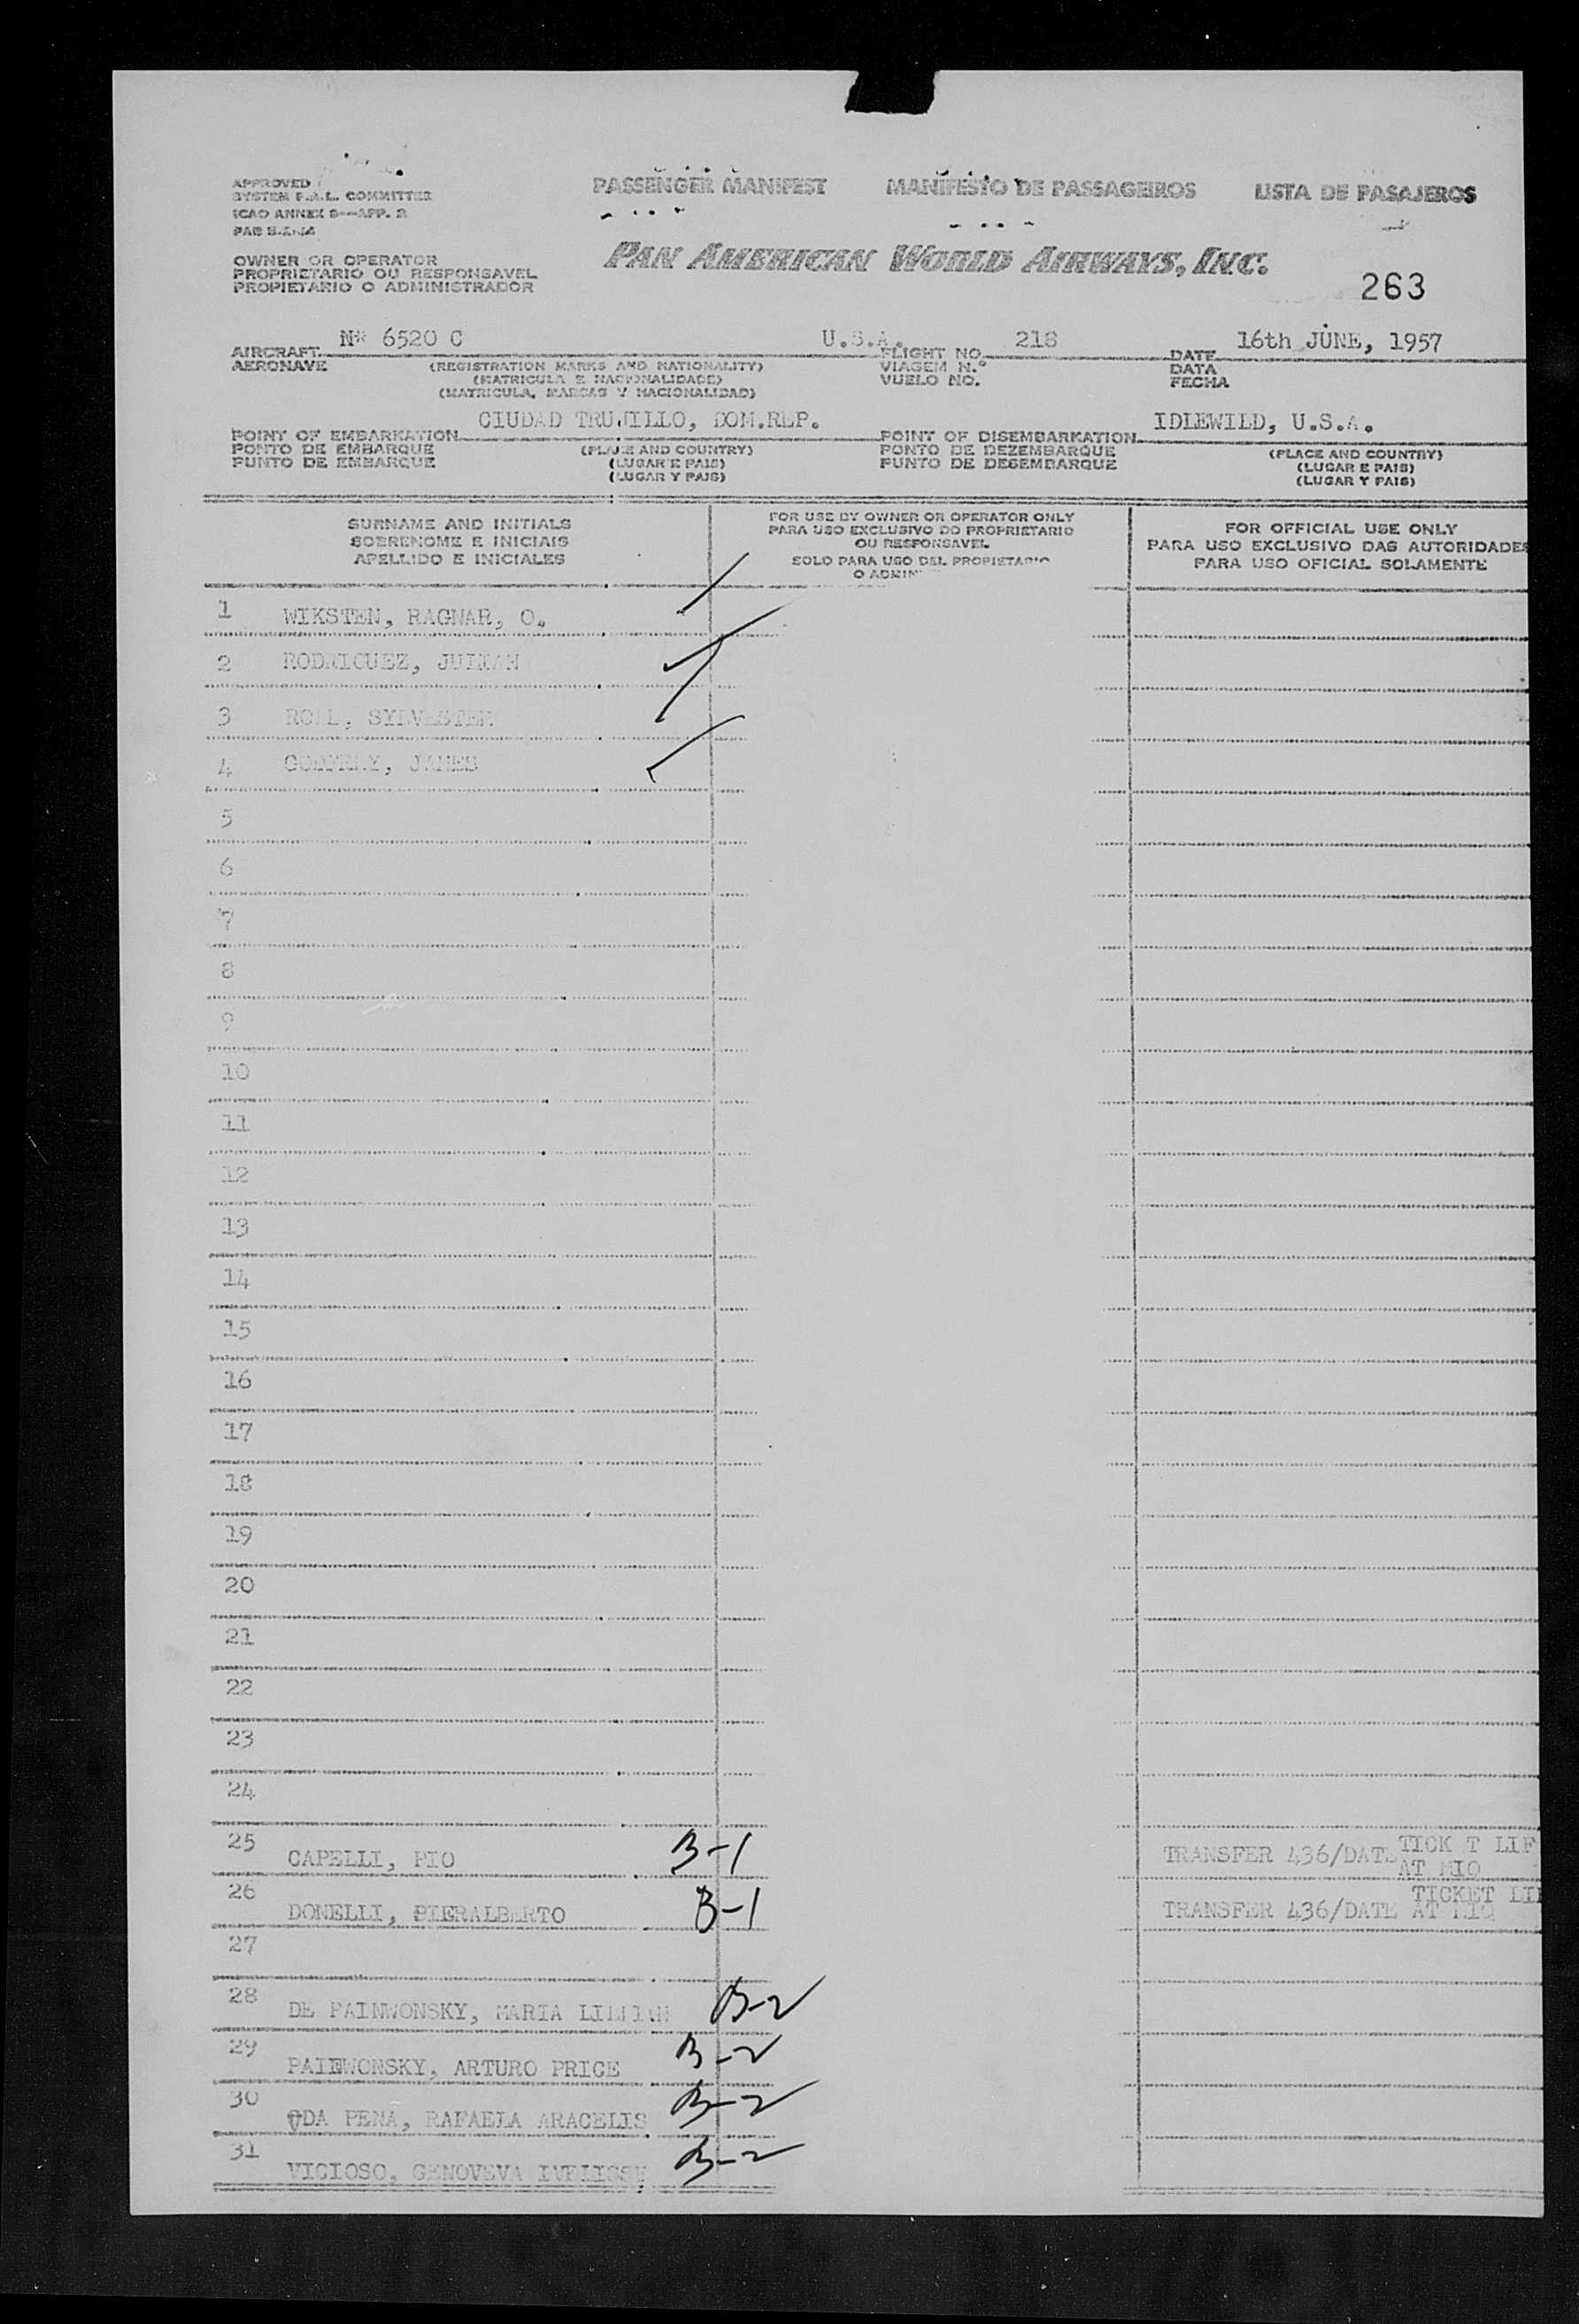 APPROVED
SYSTEM F.A.L. COMMITTEE
ICAO ANNEX 9--APP. 2
PASSENGER MANIFEST MANIFESTO DE PASSAGEIROS LISTA DE PASAJEROS
OWNER OR OPERATOR
PROPRIETARIO OU RESPONSAVEL
PROPIETARIO O ADMINISTRADOR
PAN AMERICAN WORLD AIRWAYS, INC.
263
AIRCRAFT N* 6520 C U.S.A. FLIGHT NO. 218 DATE 16th JUNE, 1957
AERONAVE (REGISTRATION MARKS AND NATIONALITY) VIAGEM N.º DATA
(MATRICULA E NACIONALIDADE) VUELO NO. FECHA
(MATRICULA, MARCAS Y NACIONALIDAD)
POINT OF EMBARKATION CIUDAD TRUJILLO, DOM.REP. POINT OF DISEMBARKATION IDLEWILD, U.S.A.
PONTO DE EMBARQUE (PLACE AND COUNTRY) PONTO DE DEZEMBARQUE (PLACE AND COUNTRY)
PUNTO DE EMBARQUE (LUGAR E PAIS) PUNTO DE DESEMBARQUE (LUGAR E PAIS)
(LUGAR Y PAIS) (LUGAR Y PAIS)
SURNAME AND INITIALS
SOBRENOME E INICIAIS
APELLIDO E INICIALES
FOR USE BY OWNER OR OPERATOR ONLY
PARA USO EXCLUSIVO DO PROPRIETARIO
OU RESPONSAVEL
SOLO PARA USO DEL PROPIETARIO
O ADMIN
FOR OFFICIAL USE ONLY
PARA USO EXCLUSIVO DAS AUTORIDADES
PARA USO OFICIAL SOLAMENTE
1 WIKSTEN, RAGNAR, O.
2 RODRIGUEZ, JULIAN
3 SYLVESTER
4 GODFREY, JAMES
5
6
7
8
9
10
11
12
13
14
15
16
17
18
19
20
21
22
23
24
25 CAPELLI, PIO B-1 TRANSFER 436/DATE TICK T LIF
AT MIQ
26 DONELLI, PIERALBERTO B-1 TRANSFER 436/DATE TICKET LIF
AT MIQ
27
28 DE PAINWONSKY, MARIA LILLIAN B-2
29 PAIEWONSKY, ARTURO PRICE B-2
30 ODA PENA, RAFAELA ARACELIS B-2
31 VICIOSO, GENOVEVA IVELISSE B-2